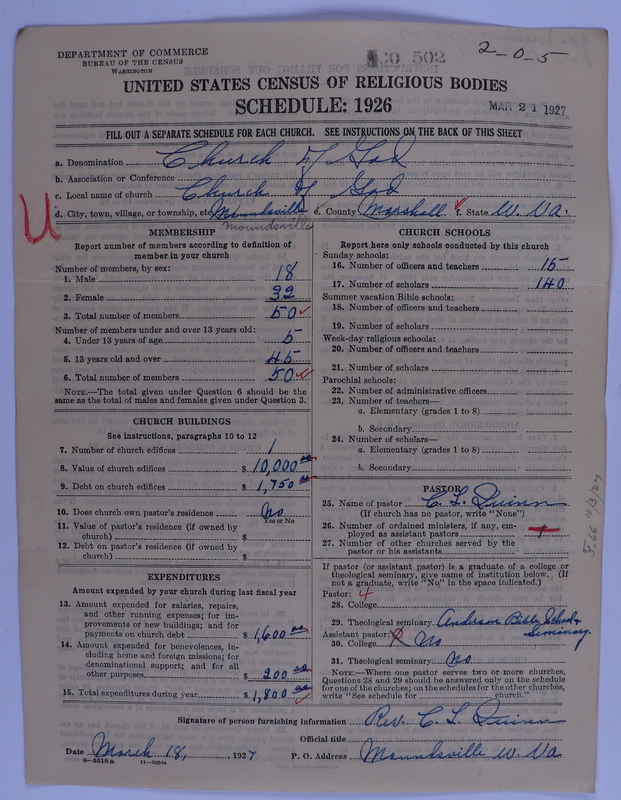 DEPARTMENT OF COMMERCE
BUREAU OF THE CENSUS
WASHINGTON
30 502
2-0-5
UNITED STATES CENSUS OF RELIGIOUS BODIES
SCHEDULE: 1926
MAR 21 1927
FILL OUT A SEPARATE SCHEDULE FOR EACH CHURCH. SEE INSTRUCTIONS ON THE BACK OF THIS SHEET
a. Denomination Church of God
b. Association or Conference
c. Local name of church Church of God
d. City, town, village, or township, etc. Moundsville e. County Marshall f. State W. Va.
Moundsville
U
MEMBERSHIP
Report number of members according to definition of
member in your church
Number of members, by sex:
1. Male 18
2. Female 32
3. Total number of members 50
Number of members under and over 13 years old:
4. Under 13 years of age 5
5. 13 years old and over 45
6. Total number of members 50
NOTE.—The total given under Question 6 should be
same as the total of males and females given under Question 3.
CHURCH BUILDINGS
See instructions, paragraphs 10 to 12
7. Number of church edifices 1
8. Value of church edifices $ 10,000 00
9. Debt on church edifices $ 1,750 00
10. Does church own pastor's residence? No
Yes or No
11. Value of pastor's residence (if owned by
church) $
12. Debt on pastor's residence (if owned by
church) $
EXPENDITURES
Amount expended by your church during last fiscal year
13. Amount expended for salaries, repairs,
and other running expenses; for im-
provements or new buildings; and for
payments on church debt $ 1,600 00
14. Amount expended for benevolences, in-
cluding home and foreign missions; for
denominational support; and for all
other purposes $ 200 00
15. Total expenditures during year $ 1,800 00
CHURCH SCHOOLS
Report here only schools conducted by this church
Sunday schools:
16. Number of officers and teachers 15
17. Number of scholars 140
Summer vacation Bible schools:
18. Number of officers and teachers
19. Number of scholars
Week-day religious schools:
20. Number of officers and teachers
21. Number of scholars
Parochial schools:
22. Number of administrative officers
23. Number of teachers—
a. Elementary (grades 1 to 8)
b. Secondary
24. Number of scholars—
a. Elementary (grades 1 to 8)
b. Secondary
PASTOR
25. Name of pastor C. L. Quinn
(If church has no pastor, write "None")
26. Number of ordained ministers, if any, em-
ployed as assistant pastors 1
27. Number of other churches served by the
pastor or his assistants
If pastor (or assistant pastor) is a graduate of a college or
theological seminary, give name of institution below. (If
not a graduate, write "No" in the space indicated.)
Pastor: 4
28. College
29. Theological seminary Anderson Bible School &
Seminary.
Assistant pastor:
30. College No
31. Theological seminary No
NOTE.—Where one pastor serves two or more churches,
Questions 28 and 29 should be answered only on the schedule
for one of the churches; on the schedules for the other churches,
write "See schedule for church."
Signature of person furnishing information Rev. C. L. Quinn
Official title
Date March 18, 1927
P. O. Address Moundsville W. Va
8-5518a 11-9051a